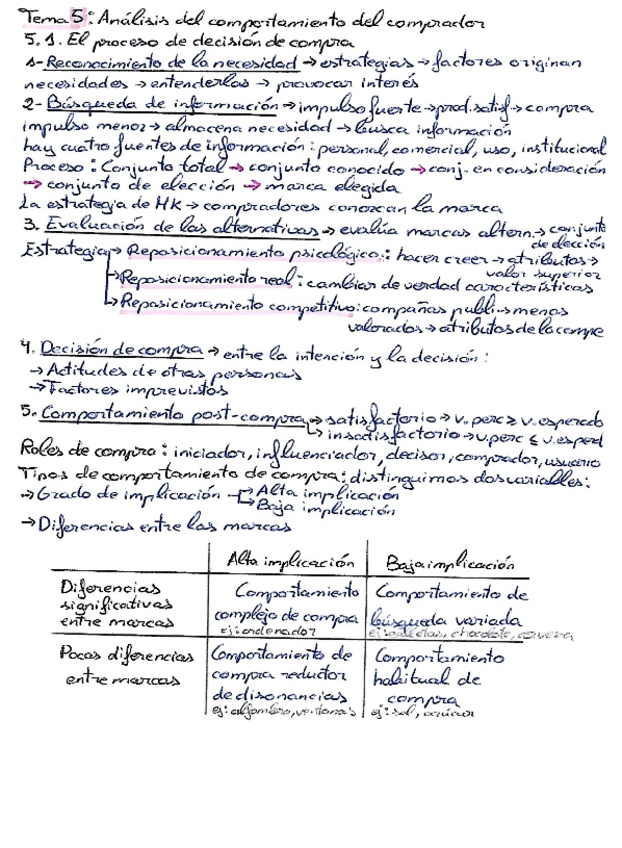 Tema 5: Análisis del comportamiento del comprador
5.1. El proceso de decisión de compra
1- Reconocimiento de la necesidad → estrategias → factores originan
necesidades → entenderlas → provocar interés
2- Búsqueda de información → impulso fuerte → prod. satisf → compra
impulso menor → almacena necesidad → busca información
hay cuatro fuentes de información: personal, comercial, uso, institucional
Proceso: Conjunto total → conjunto conocido → conj. en consideración
→ conjunto de elección → marca elegida
La estrategia de MK → compradores conozcan la marca
3. Evaluación de las alternativas → evalúa marcas altern. → conjunto
de elección
Estrategia → Reposicionamiento psicológico: hacer creer → atributos →
valor superior
→ Reposicionamiento real: cambiar de verdad características
→ Reposicionamiento competitivo: compañas publi → menos
valorados → atributos de la compe
4. Decisión de compra → entre la intención y la decisión:
→ Actitudes de otras personas
→ Factores imprevistos
5. Comportamiento post-compra → satisfactorio → v. perc ≥ v. esperado
→ insatisfactorio → v. perc ≤ v. esperd
Roles de compra: iniciador, influenciador, decisor, comprador, usuario
Tipos de comportamiento de compra: distinguimos dos variables:
→ Grado de implicación → Alta implicación
→ Baja implicación
→ Diferencias entre las marcas
Alta implicación Baja implicación
Diferencias significativas entre marcas
Comportamiento complejo de compra
ej: ordenador
Comportamiento de búsqueda variada
ej: galletas, chocolate, cerveza
Pocas diferencias entre marcas
Comportamiento de compra reductor de disonancias
ej: alfombra, ventanas
Comportamiento habitual de compra
ej: sal, azúcar